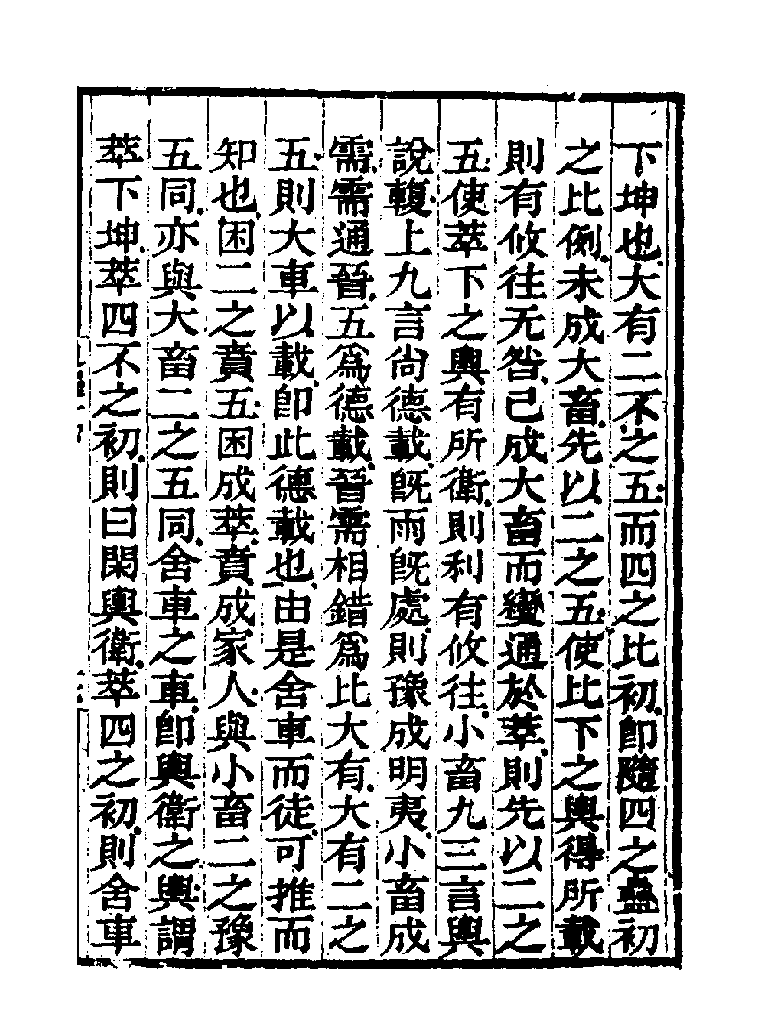 下坤也大有二不之五而四之比初卽隨四之蠱初
之比例未成大畜先以二之五使比下之輿得所載
則有攸往无咎已成大畜而變通於萃則先以二之
五使萃下之輿有所衛則利有攸往小畜九三言輿
說輹上九言尚德載旣雨旣處則豫成明夷小畜成
需需通晉五爲德載晉需相錯爲比大有大有二之
五則大車以載卽此德載也由是舍車而徒可推而
知也困二之賁五困成萃賁成家人與小畜二之豫
五同亦與大畜二之五同舍車之車卽輿衛之輿謂
萃下坤萃四不之初則曰閑輿衛萃四之初則舍車